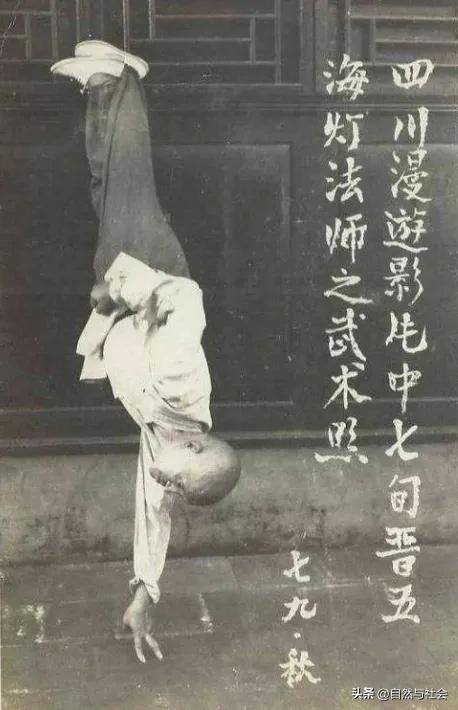 四川漫遊影片中七旬晋五
海灯法师之武术照
七九·秋
头条 @自然与社会